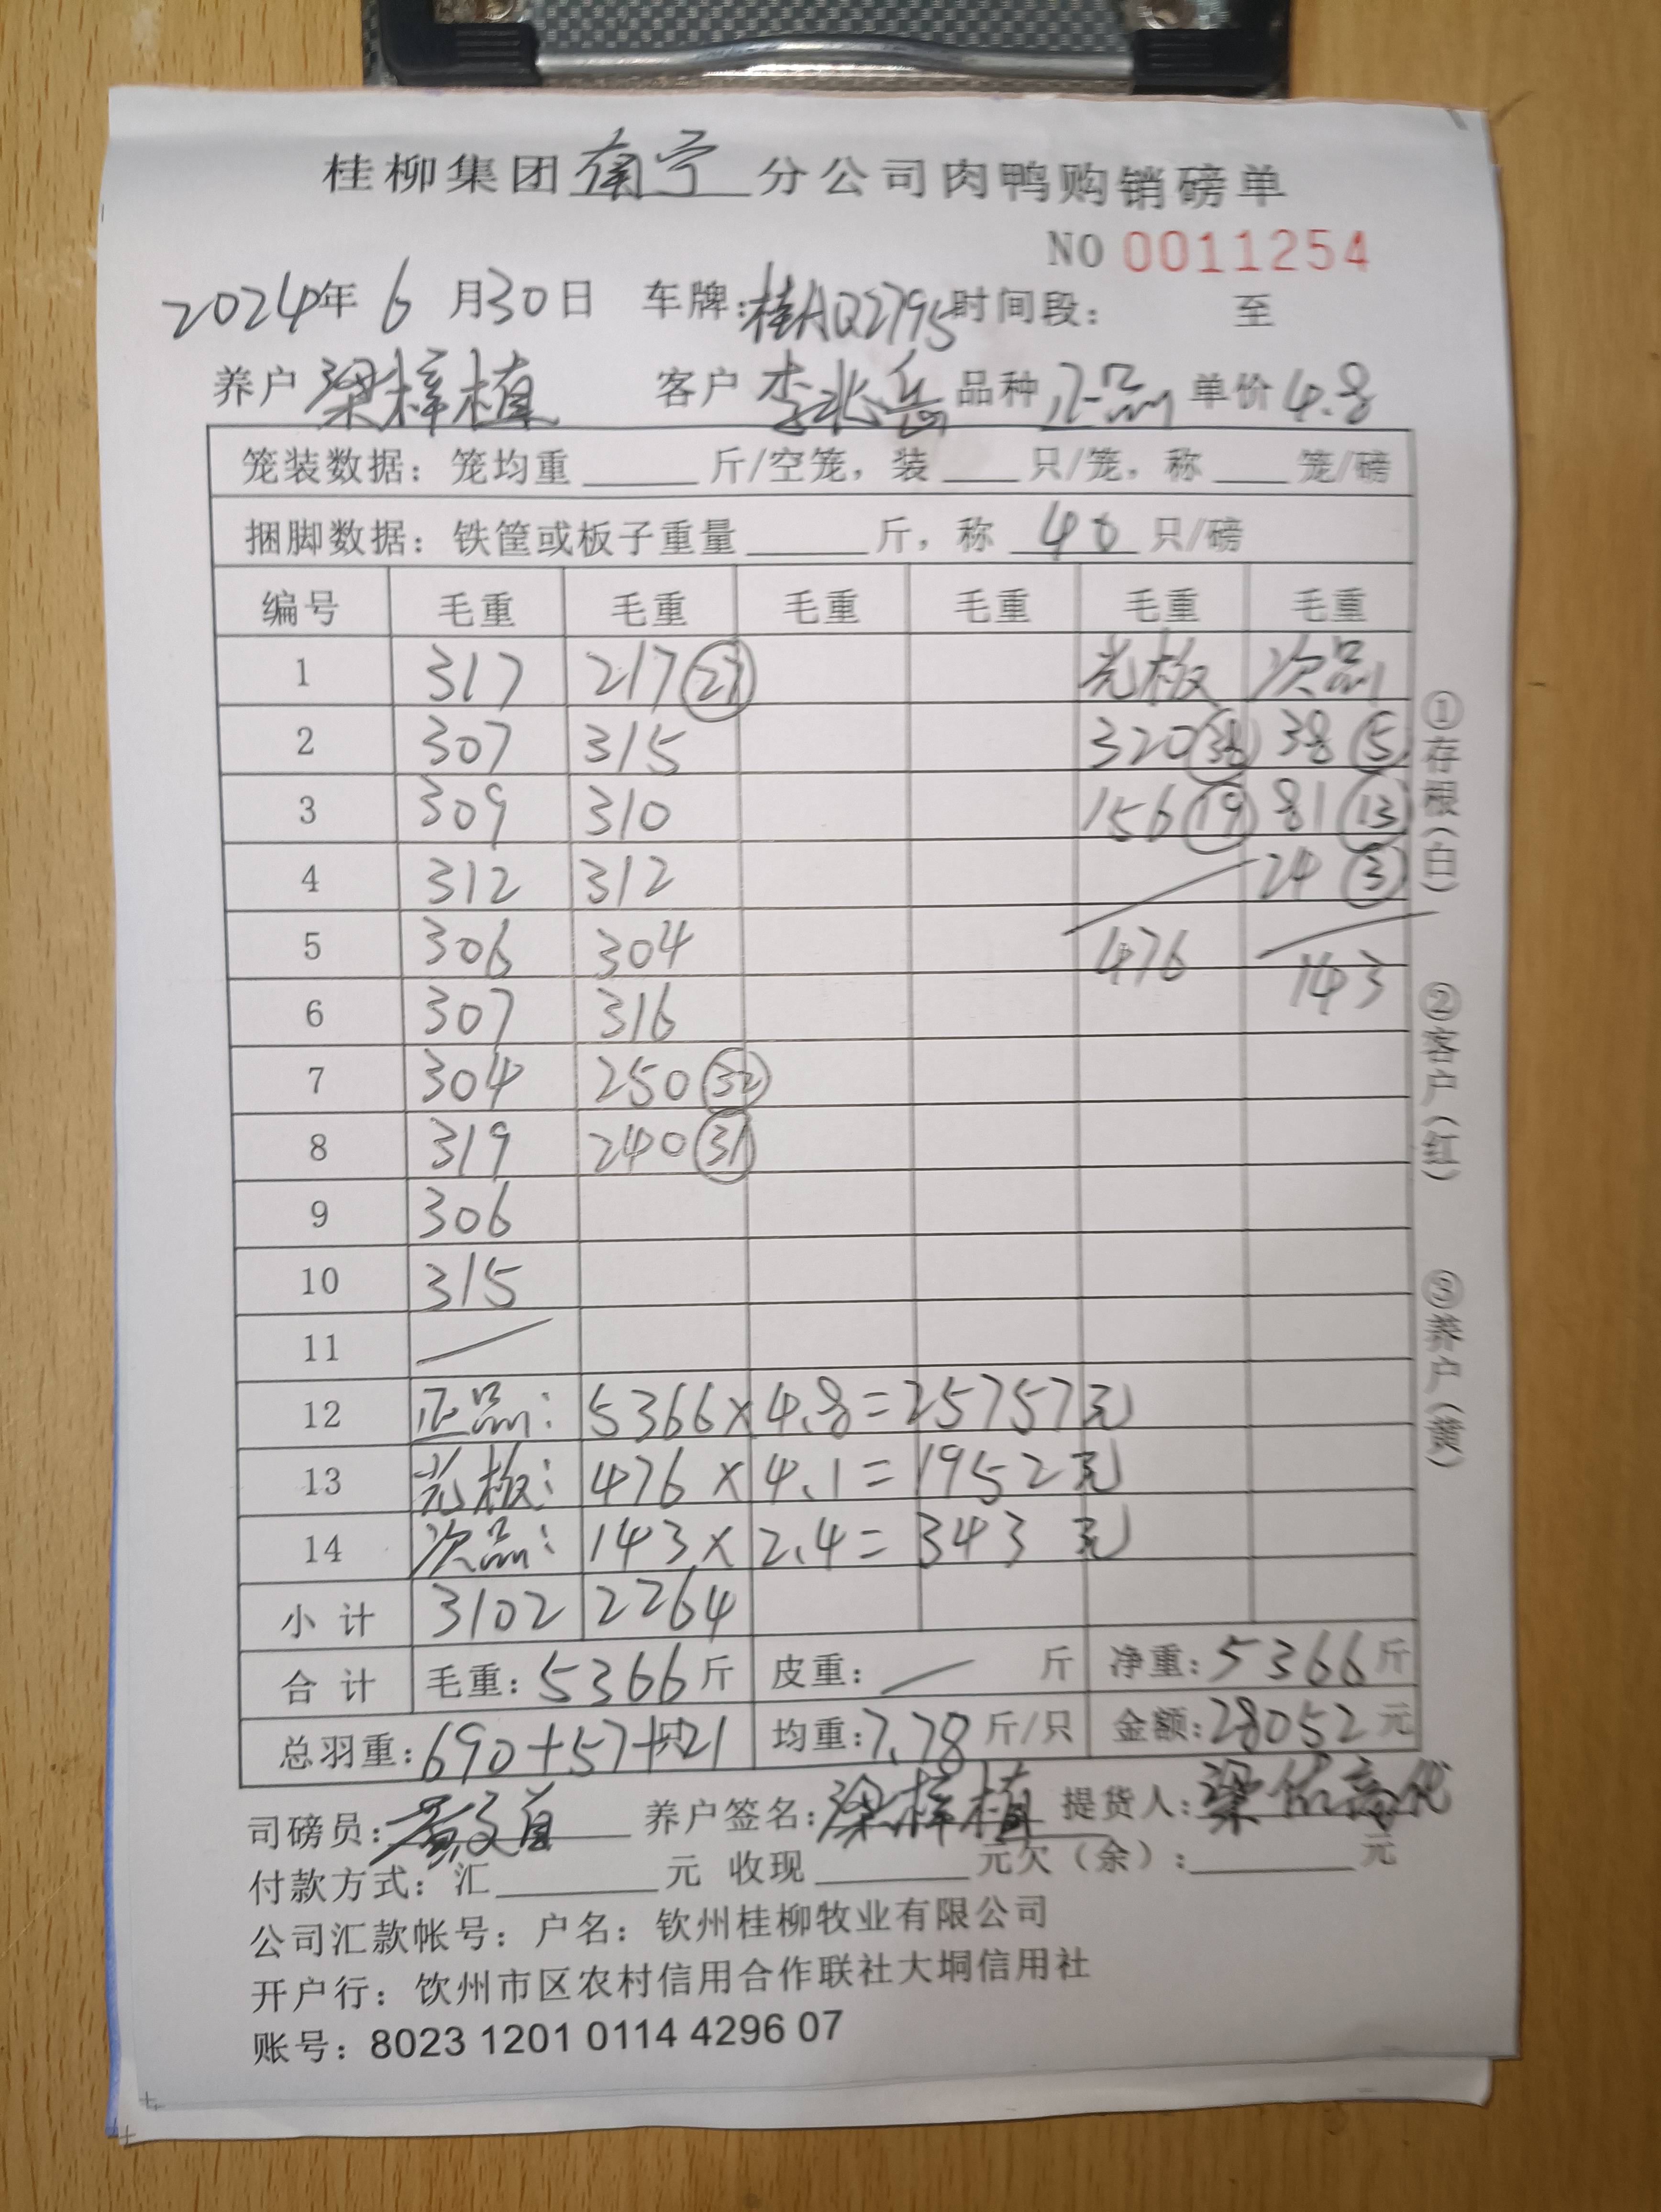 桂柳集团南宁分公司肉鸭购销磅单
NO 0011254
2024年 6 月30日 车牌:桂AQ2795 时间段: 至
养户 梁梓植 客户 李兆岳 品种 正品 单价 4.8
笼装数据: 笼均重 斤/空笼, 装 只/笼, 称 笼/磅
捆脚数据: 铁筐或板子重量 斤, 称 40 只/磅
编号 毛重 毛重 毛重 毛重 毛重 毛重
1 317 217 (27) 光板 次品
2 307 315 320 (38) 38 (5)
3 309 310 156 (19) 81 (13)
4 312 312 24 (3)
5 306 304 476
6 307 316 143
7 304 250 (32)
8 319 240 (31)
9 306
10 315
11 /
12 正品: 5366×4.8=25757元
13 光板: 476×4.1=1952元
14 次品: 143×2.4=343元
小计 3102 2264
合计 毛重: 5366斤 皮重: — 斤 净重: 5366斤
总羽重: 690+57+21 只 均重: 7.78 斤/只 金额: 28052 元
司磅员: 养户签名: 梁梓植 提货人:
付款方式: 汇 元 收现 元欠(余): 元
公司汇款帐号: 户名: 钦州桂柳牧业有限公司
开户行: 饮州市区农村信用合作联社大垌信用社
账号: 8023 1201 0114 4296 07
①存根(白) ②客户(红) ③养户(黄)